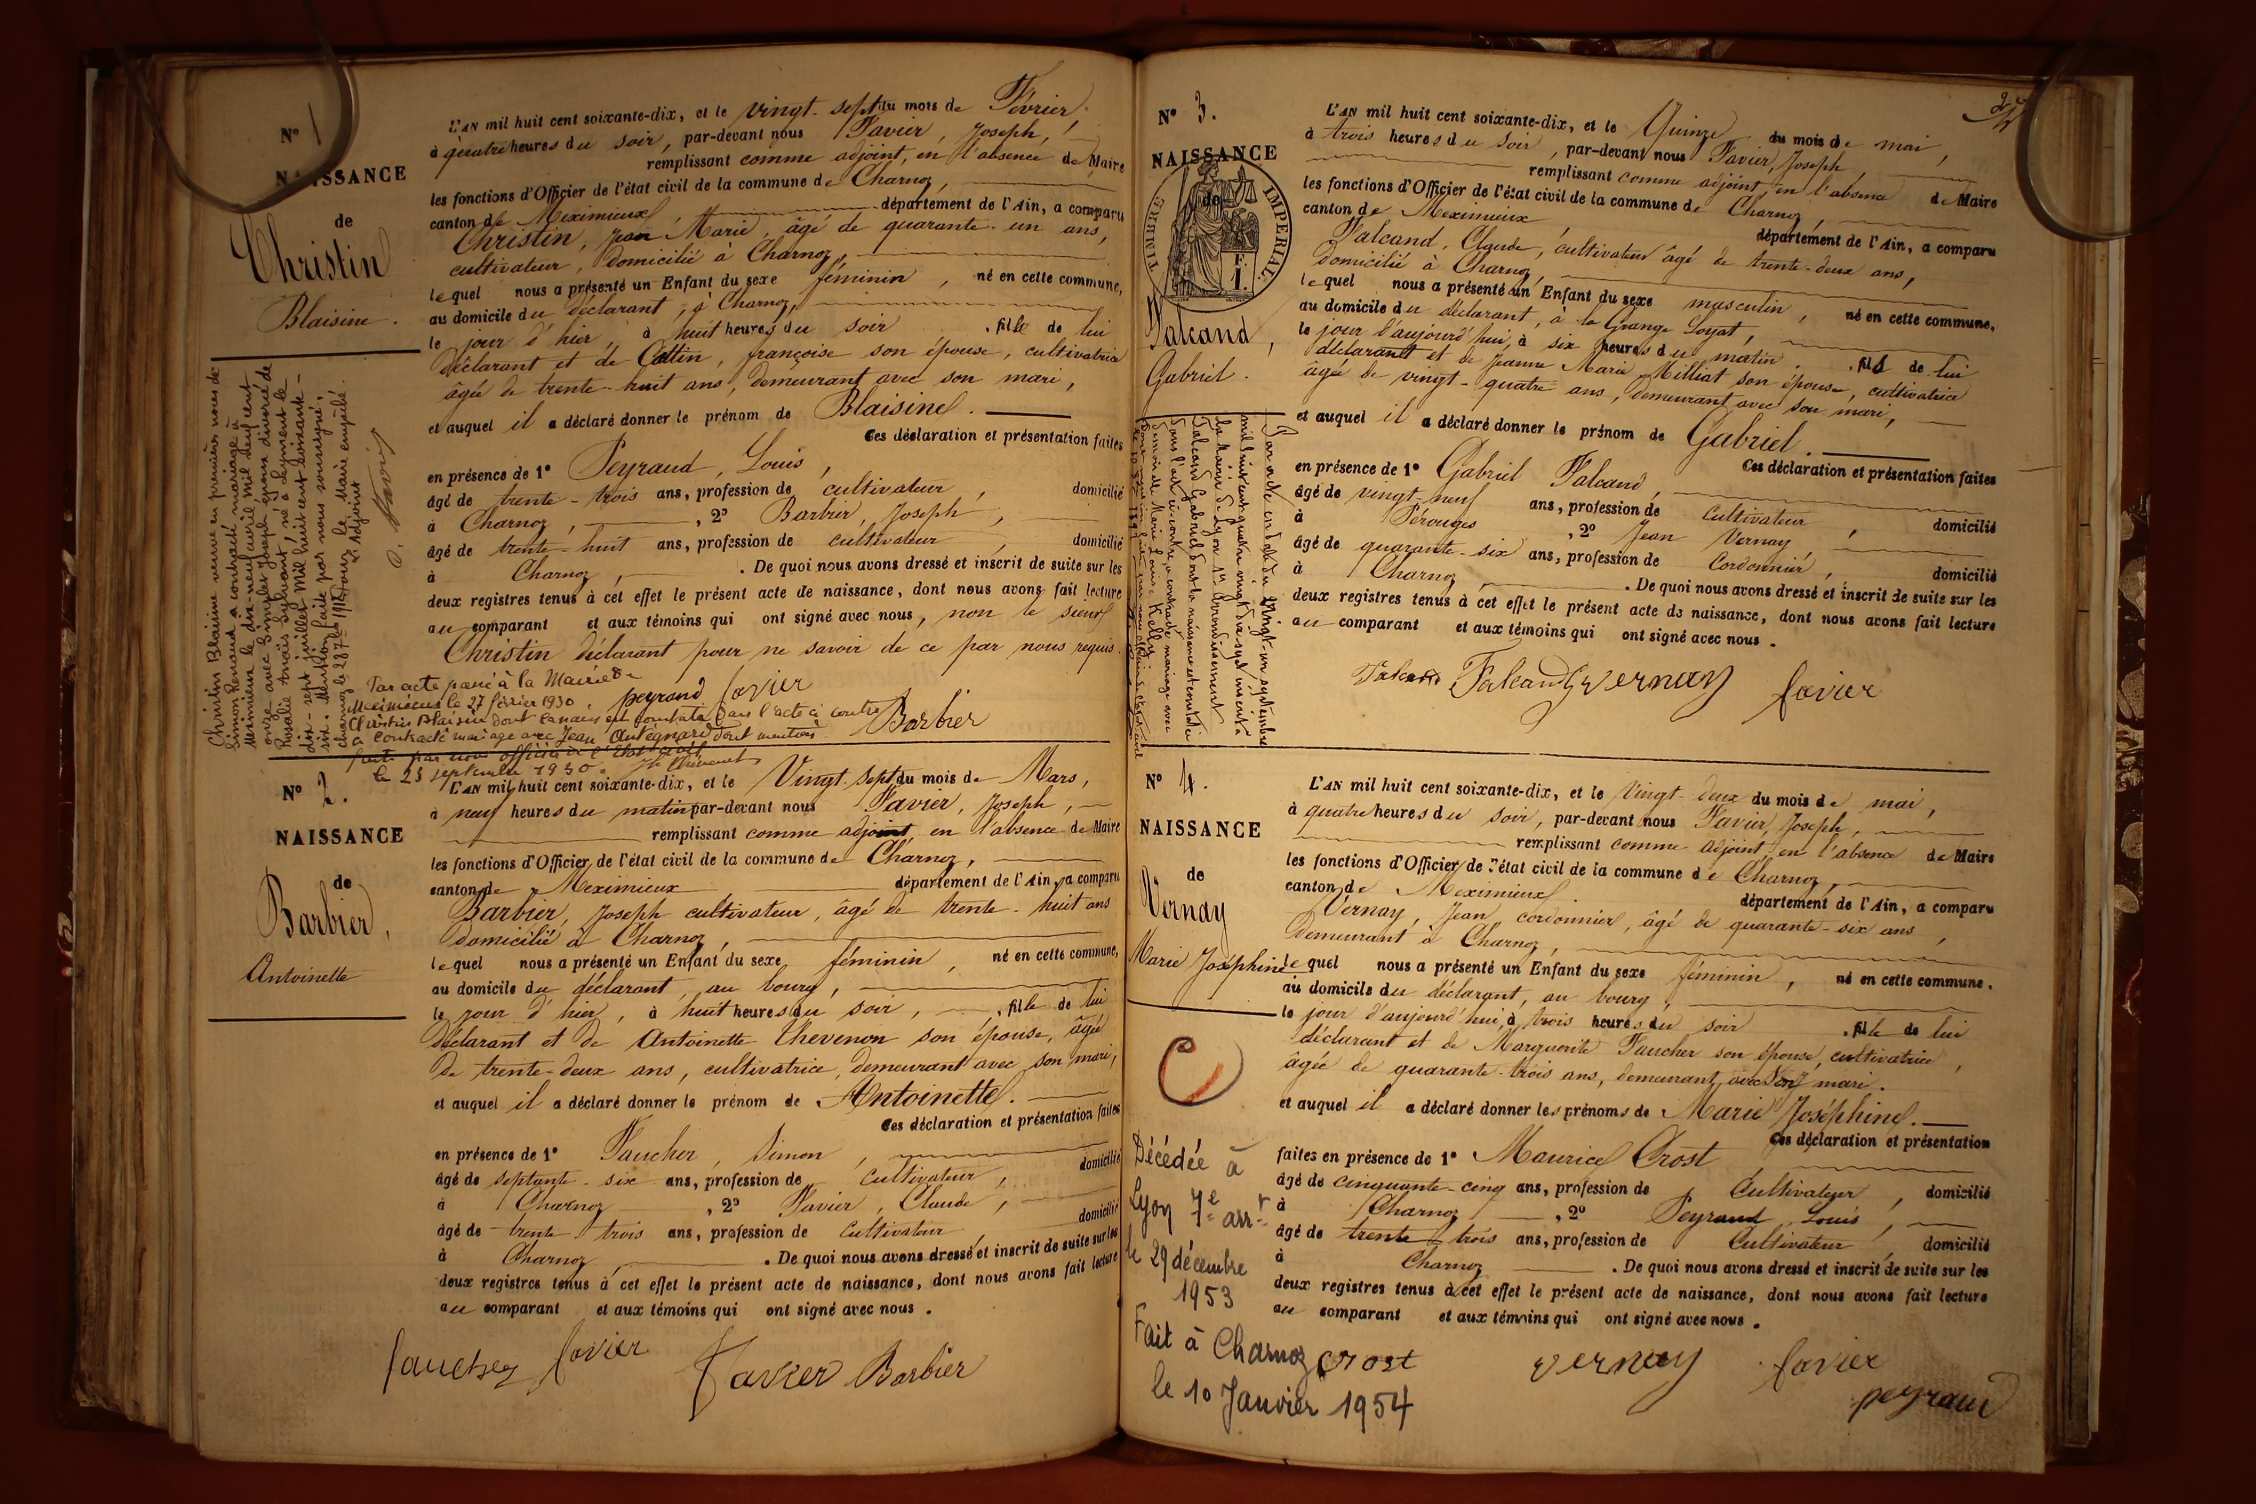 N° 1
NAISSANCE
de
Christin
Blaisine.
L'AN mil huit cent soixante-dix, et le vingt-sept du mois de Février,
à quatre heures du soir, par-devant nous Favier, Joseph,
remplissant comme adjoint, en l'absence de Maire
les fonctions d'Officier de l'état civil de la commune de Charnoz,
canton de Meximieux, département de l'Ain, a comparu
Christin, Jean Marie, âgé de quarante-un ans,
cultivateur, domicilié à Charnoz,
lequel nous a présenté un Enfant du sexe féminin, né en cette commune,
au domicile du déclarant, à Charnoz,
le jour d'hier, à huit heures du soir, fille de lui
déclarant et de Cottin, françoise son épouse, cultivatrice
âgée de trente-huit ans, demeurant avec son mari,
et auquel il a déclaré donner le prénom de Blaisine.
Ces déclaration et présentation faites
en présence de 1° Peyraud, Louis,
âgé de trente-trois ans, profession de cultivateur, domicilié
à Charnoz, 2° Barbier, Joseph,
âgé de trente-huit ans, profession de cultivateur, domicilié
à Charnoz, . De quoi nous avons dressé et inscrit de suite sur les
deux registres tenus à cet effet le présent acte de naissance, dont nous avons fait lecture
au comparant et aux témoins qui ont signé avec nous, non le sieur
Christin déclarant pour ne savoir de ce par nous requis.
peyraud favier
Barbier
Christin Blaisine veuve en premières noces de
Simon Renaud a contracté mariage à
Meximieux le dix-neuf avril mil neuf cent
onze avec Joseph, époux divorcé de
Rosalie Anaïs Sylvant, né à Leyment le
dix-sept juillet mil huit cent soixante-
six. Mention faite par nous soussigné,
Charnoz le Pour le Maire empêché
L'Adjoint
Par acte passé à la Mairie de
Meximieux le 27 février 1930,
Christin Blaisine dont la naissance est constatée dans l'acte ci contre
a contracté mariage avec Jean dont mention
faite par nous officier de l'Etat civil
le 23 septembre 1930.
N° 2.
NAISSANCE
de
Barbier,
Antoinette
L'AN mil huit cent soixante-dix, et le Vingt-sept du mois de Mars,
à neuf heures du matin par-devant nous Favier, Joseph,
remplissant comme adjoint, en l'absence de Maire
les fonctions d'Officier de l'état civil de la commune de Charnoz,
canton de Meximieux département de l'Ain, a comparu
Barbier, Joseph cultivateur, âgé de trente-huit ans
domicilié à Charnoz,
lequel nous a présenté un Enfant du sexe féminin, né en cette commune,
au domicile du déclarant, au bourg,
le jour d'hier, à huit heures du soir, fille de lui
déclarant et de Antoinette Thevenon son épouse, âgée
de trente-deux ans, cultivatrice, demeurant avec son mari,
et auquel il a déclaré donner le prénom de Antoinette.
Ces déclaration et présentation faites
en présence de 1° Faucher, Simon,
âgé de septante-six ans, profession de cultivateur, domicilié
à Charnoz, 2° Favier, Claude,
âgé de trente-trois ans, profession de cultivateur, domicilié
à Charnoz, . De quoi nous avons dressé et inscrit de suite sur les
deux registres tenus à cet effet le présent acte de naissance, dont nous avons fait lecture
au comparant et aux témoins qui ont signé avec nous.
faucher favier Favier Barbier
N° 3.
NAISSANCE
de
TIMBRE IMPERIAL
1F.
Falcand,
Gabriel.
L'AN mil huit cent soixante-dix, et le Quinze du mois de mai,
à trois heures du soir, par-devant nous Favier, Joseph,
remplissant comme adjoint, en l'absence de Maire
les fonctions d'Officier de l'état civil de la commune de Charnoz,
canton de Meximieux, département de l'Ain, a comparu
Falcand, Claude, cultivateur âgé de trente-deux ans,
domicilié à Charnoz,
lequel nous a présenté un Enfant du sexe masculin, né en cette commune,
au domicile du déclarant, à la Grange Loyat,
le jour d'aujourd'hui, à six heures du matin, fils de lui
déclarant et de Jeanne Marie Milliat son épouse, cultivatrice
âgée de vingt-quatre ans, demeurant avec son mari,
et auquel il a déclaré donner le prénom de Gabriel.
Ces déclaration et présentation faites
en présence de 1° Gabriel Falcand,
âgé de vingt-neuf ans, profession de cultivateur, domicilié
à Pérouges, 2° Jean Vernay,
âgé de quarante-six ans, profession de Cordonnier, domicilié
à Charnoz, . De quoi nous avons dressé et inscrit de suite sur les
deux registres tenus à cet effet le présent acte de naissance, dont nous avons fait lecture
au comparant et aux témoins qui ont signé avec nous.
Falcand Falcand G vernay favier
Par acte en date du vingt-un septembre
mil huit cent quatre vingt dix sept inscrit à
la Mairie de Lyon arrondissement
Falcand Gabriel dont la naissance est constatée
dans l'acte ci-contre, a contracté mariage avec
demoiselle Marie Louise
N° 4.
NAISSANCE
de
Vernay
Marie Joséphine
L'AN mil huit cent soixante-dix, et le Vingt-deux du mois de mai,
à quatre heures du soir, par-devant nous Favier, Joseph,
remplissant comme adjoint en l'absence de Maire
les fonctions d'Officier de l'état civil de la commune de Charnoz,
canton de Meximieux, département de l'Ain, a comparu
Vernay, Jean, cordonnier, âgé de quarante-six ans,
demeurant à Charnoz,
lequel nous a présenté un Enfant du sexe féminin, né en cette commune,
au domicile du déclarant, au bourg,
le jour d'aujourd'hui, à trois heures du soir, fille de lui
déclarant et de Marguerite Faucher son épouse, cultivatrice,
âgée de quarante-trois ans, demeurant avec son mari.
et auquel il a déclaré donner les prénoms de Marie Joséphine.
Ces déclaration et présentation
faites en présence de 1° Maurice Crost
âgé de cinquante-cinq ans, profession de Cultivateur, domicilié
à Charnoz, 2° Peyraud, Louis,
âgé de trente-trois ans, profession de Cultivateur, domicilié
à Charnoz . De quoi nous avons dressé et inscrit de suite sur les
deux registres tenus à cet effet le présent acte de naissance, dont nous avons fait lecture
au comparant et aux témoins qui ont signé avec nous.
Crost vernay favier
peyraud
Décédée à
Lyon 7e arrt
le 29 décembre
1953
Fait à Charnoz
le 10 Janvier 1954